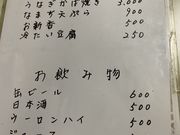 うなぎかば焼き 3.000
なまず天ぷら 900
お新香 500
冷たい豆腐 250
お飲み物
缶ビール 600
日本海 500
ウーロンハイ 500